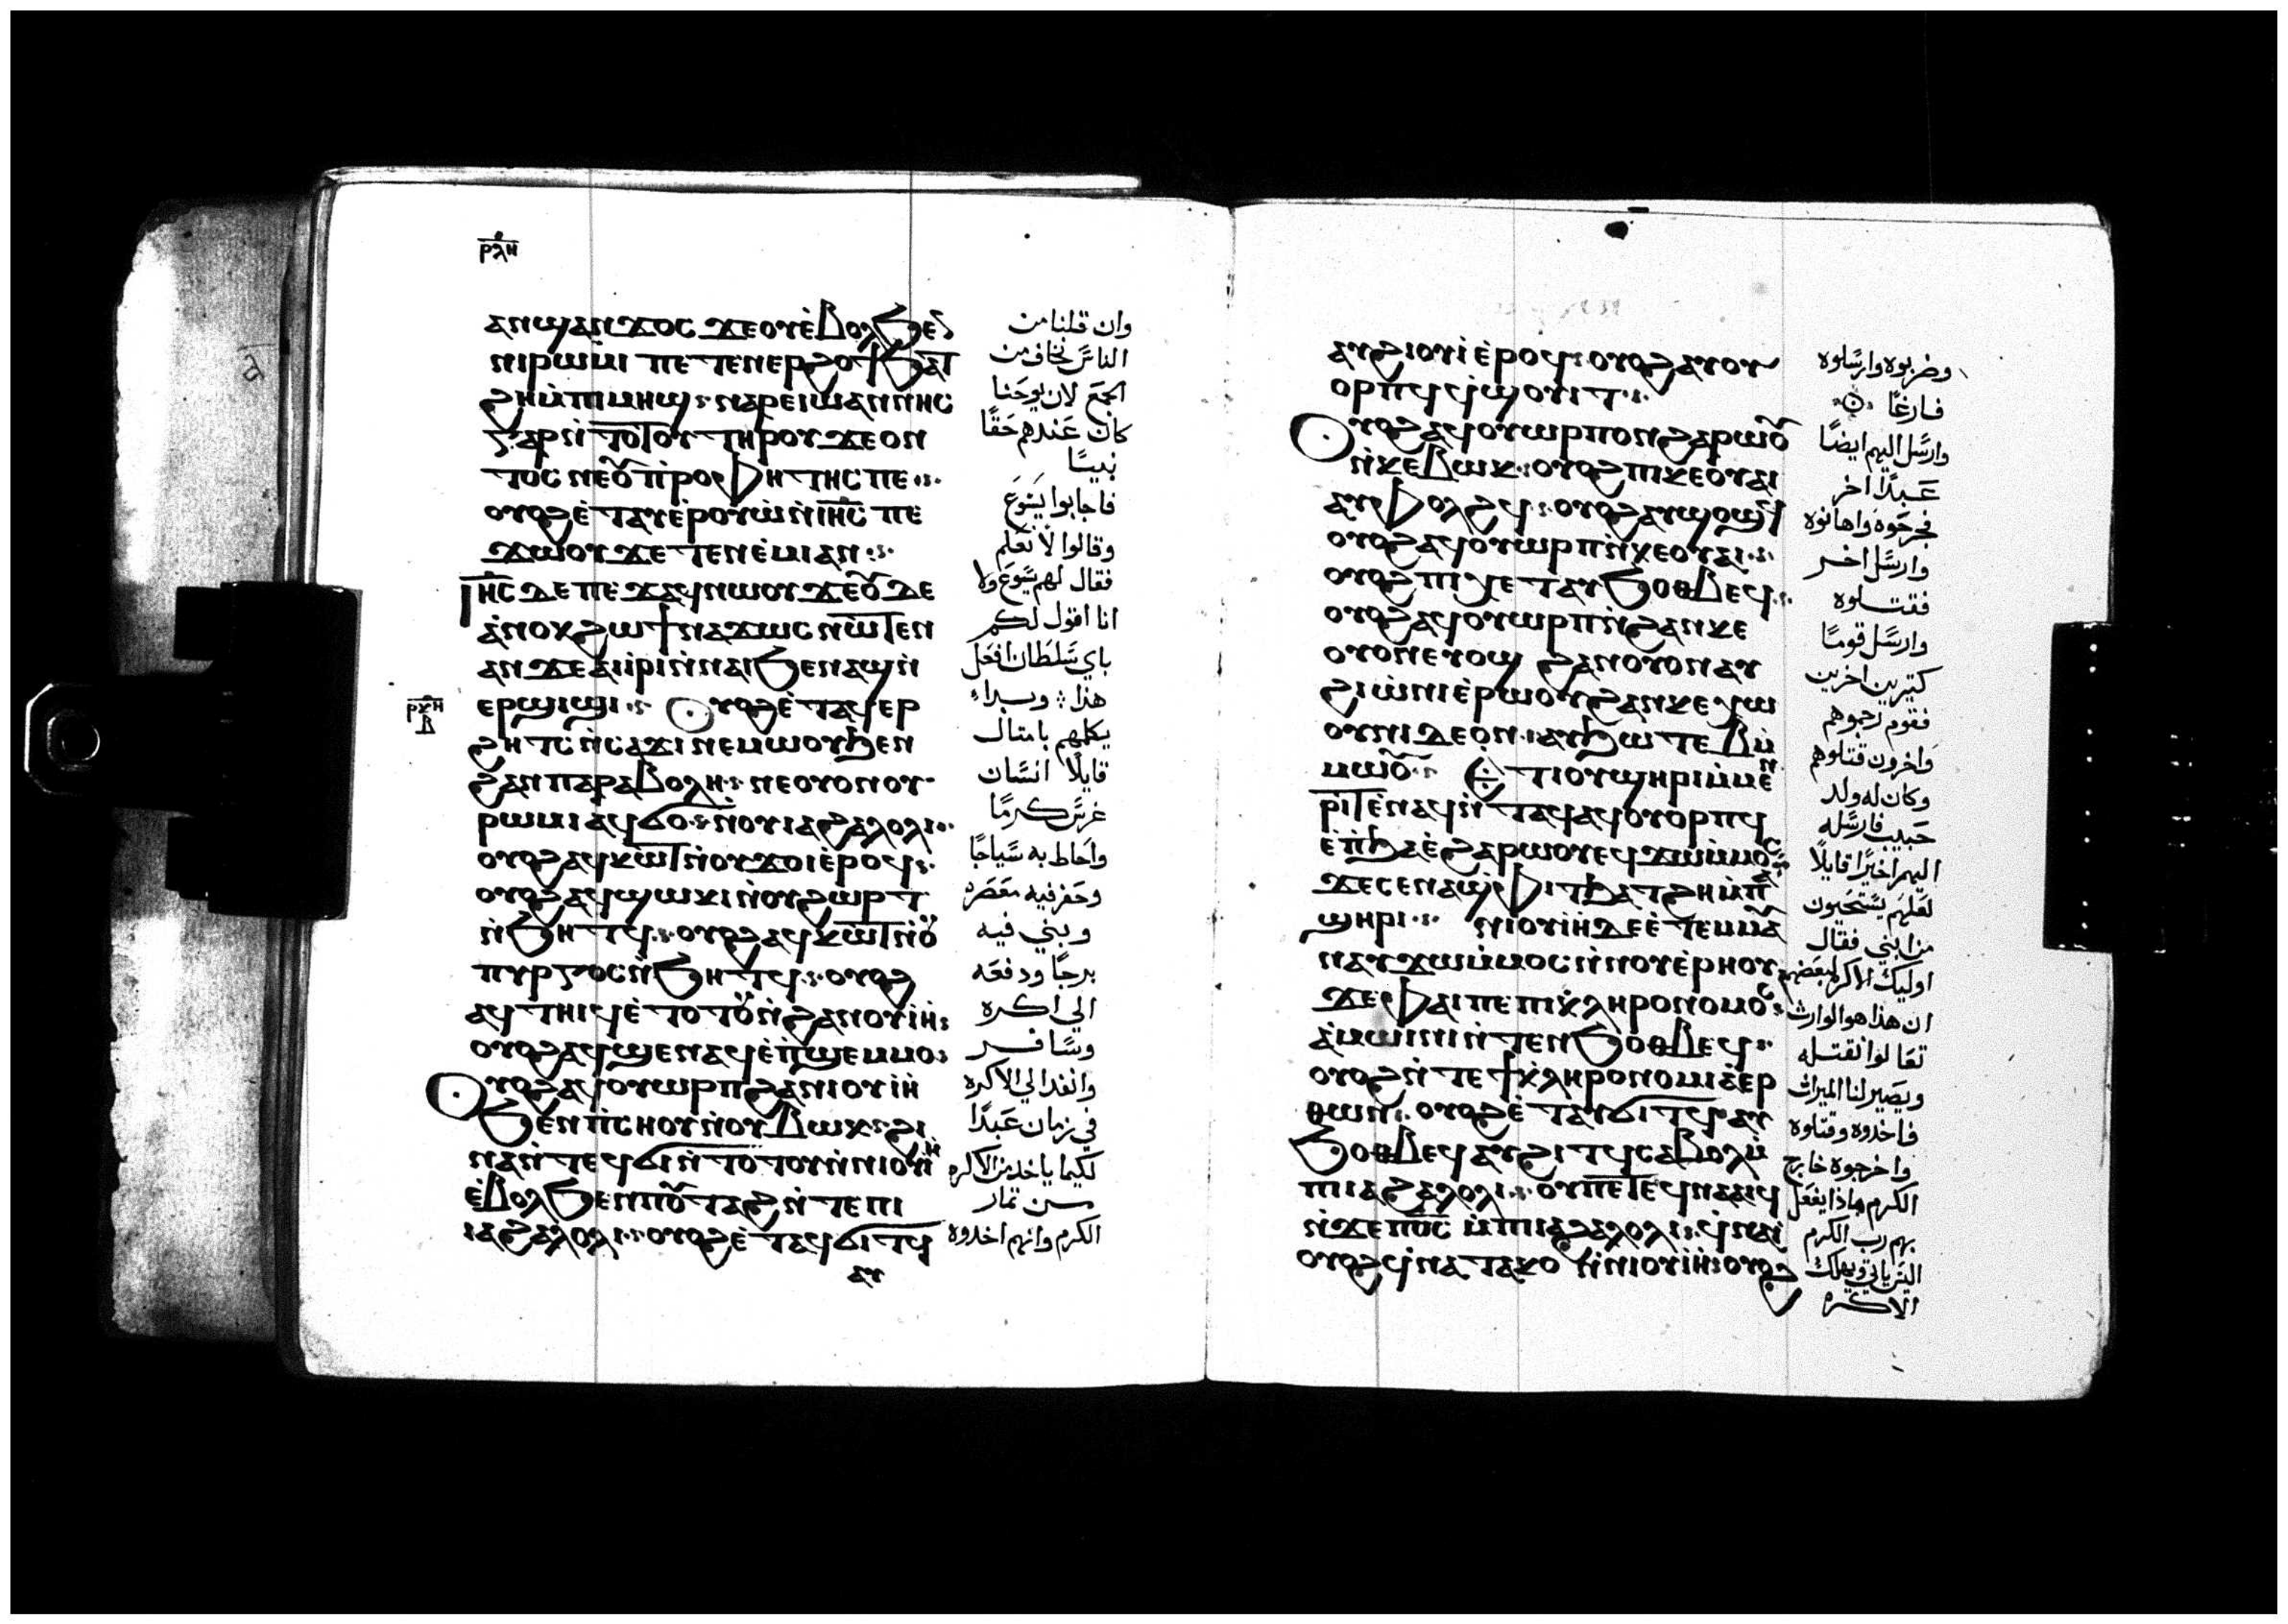 ⲣⲗⲏ
ⲁⲛϣⲁⲛϫⲟⲥ ϫⲉⲟⲩⲉ̀ⲃⲟⲗϧⲉⲛ
ⲛⲓⲣⲱⲙⲓ ⲡⲉ ⲧⲉⲛⲉⲣϩⲟϯϧⲁⲧ
ϩⲏⲙ̀ⲡⲓⲙⲏϣ ⲛⲁⲣⲉⲓⲱⲁⲛⲛⲏⲥ
ⲅⲁⲣⲛ̀ⲧⲟⲧⲟⲩ ⲧⲏⲣⲟⲩ ϫⲉⲟⲛ
ⲧⲟⲥ ⲛⲉⲟⲩⲡ̀ⲣⲟⲫⲏⲧⲏⲥ ⲡⲉ
ⲟⲩⲟϩⲉ̀ⲧⲁⲩⲉ̀ⲣⲟⲩⲱ̀ⲛ̀ⲓⲏ̅ⲥ̅ ⲡⲉ
ϫⲱⲟⲩ ϫⲉ ⲧⲉⲛⲉ̀ⲙⲓⲁⲛ
ⲓⲏ̅ⲥ̅ ⲇⲉ ⲡⲉϫⲁϥⲛⲱⲟⲩ ϫⲉⲟⲩⲇⲉ
ⲁ̀ⲛⲟⲕϩⲱϯⲛⲁϫⲱⲥ ⲛⲱⲧⲉⲛ
ⲁⲛ ϫⲉⲁⲓⲓ̀ⲣⲓⲛ̀ⲛⲁⲓϧⲉⲛⲁϣⲛ̀
ⲉⲣϣⲓϣⲓ Ⲟⲩⲟϩⲉ̀ⲧⲁϥⲉⲣ
ϩⲏⲧⲥⲛ̀ⲥⲁϫⲓ ⲛⲉⲙⲱⲟⲩϧⲉⲛ
ϩⲁⲛⲡⲁⲣⲁⲃⲟⲗⲏ ⲛⲉⲟⲩⲟⲛⲟⲩ
ⲣⲱⲙⲓ ⲁϥϭⲟ ⲛ̀ⲟⲩⲓⲁϩⲁⲗⲟⲗⲓ
ⲟⲩⲟϩⲁϥⲕⲱⲧⲛ̀ⲟⲩϫⲟⲓⲉ̀ⲣⲟϥ
ⲟⲩⲟϩⲁϥϣⲱⲕⲓⲛ̀ⲟⲩϩⲣⲱⲧ
ⲛ̀ϧⲏⲧϥ ⲟⲩⲟϩⲁϥⲕⲱⲧⲛ̀ⲟⲩ
ⲡⲩⲣⲅⲟⲥⲛ̀ϧⲏⲧϥ ⲟⲩⲟϩ
ⲁϥⲧⲏⲓϥⲉ̀ⲧⲟⲧⲟⲩⲛ̀ϩⲁⲛⲟⲩⲓⲏ
ⲟⲩⲟϩⲁϥϣⲉⲛⲁϥⲉ̀ⲡ̀ϣⲉⲙⲙⲟ
Ⲟⲩⲟϩⲁϥⲟⲩⲱⲣⲡϩⲁⲛⲓⲟⲩⲓⲏ
ϧⲉⲛⲡ̀ⲥⲏⲟⲩⲛ̀ⲟⲩⲃⲱⲕ ϩⲓ
ⲛⲁⲛ̀ⲧⲉϥϭⲓⲛ̀ⲧⲟⲧⲟⲩⲛ̀ⲛⲓⲟⲩⲓⲏ
ⲉ̀ⲃⲟⲗϧⲉⲛⲡⲟⲩⲧⲁϩⲛ̀ⲧⲉⲡⲓ
ⲓⲁϩⲁⲗⲟⲗⲓ ⲟⲩⲟϩⲉ̀ⲧⲁϥϭⲓⲧϥ
ⲁⲩ
وان قلنا من
الناس نخاف من
الجمع لان يوحنا
كان عندهم حقًا
نبيًا
فاجابوا يسوع
وقالوا لا نعلم
فقال لهم يسوع ولا
انا اقول لكم
باي سلطان افعل
هذا وبداء
يكلمهم بامثال
قايلًا انسان
غرس كرمًا
واحاط به سياجًا
وحفر فيه معصره
وبني فيه
برجًا ودفعه
الي اكره
وسافر
وانفد الي الاكره
في زمان عبدًا
لكيما ياخد من الاكره
من تمار
الكرم وانهم اخدوه
ⲁⲩϩⲓⲟⲩⲓⲉ̀ⲣⲟϥ ⲟⲩⲟϩⲁⲩⲟⲩ
ⲟⲣⲡϥϥ̀ϣⲟⲩⲓⲧ
Ⲟⲩⲟϩⲁϥⲟⲩⲱⲣⲡⲟⲛϩⲁⲣⲱⲟⲩ
ⲛ̀ⲕⲉⲃⲱⲕ ⲟⲩⲟϩⲡⲓⲕⲉⲟⲩⲁⲓ
ⲁⲩⲫⲟⲗϩϥ ⲟⲩⲟϩⲁⲩϣⲟϣϥ
ⲟⲩⲟϩⲁϥⲟⲩⲱⲣⲡⲛ̀ⲕⲉⲟⲩⲁⲓ
ⲟⲩⲟϩⲡⲓⲭⲉⲧⲁⲩϧⲟⲑⲃⲉϥ
ⲟⲩⲟϩⲁϥⲟⲩⲱⲣⲡⲛ̀ϩⲁⲛⲕⲉ
ⲟⲩⲟⲛⲉⲩⲟϣ ϩⲁⲛⲟⲩⲟⲛⲁⲩ
ϩⲓⲱ̀ⲛⲓⲉ̀ⲣⲱⲟⲩ ϩⲁⲛⲕⲉⲭⲱ
ⲟⲩⲛⲓⲇⲉⲟⲛ ⲁⲩϧⲱⲧⲉⲃⲙ̀
ⲙⲱⲟⲩ Ⲉⲧⲓⲟⲩϣⲏⲣⲓⲙ̀ⲙⲉⲛ
ⲣⲓⲧⲉ̀ⲛⲁϥⲛ̀ⲧⲁϥⲁϥⲟⲩⲟⲣⲡϥ
ⲉ̀ⲡ̀ϧⲁⲉ̀ϩⲁⲣⲱⲟⲩⲉϥϫⲱⲙ̀ⲙⲟⲥ
ϫⲉⲥⲉⲛⲁϣⲫⲓⲧϧⲁⲧϩⲏⲙ̀ⲡⲁ
ϣⲏⲣⲓ ⲛⲓⲟⲩⲓⲏⲇⲉⲉ̀ⲧⲉⲙⲙⲁⲩ
ⲛⲁⲩϫⲱⲙ̀ⲙⲟⲥⲛ̀ⲛⲟⲩⲉ̀ⲣⲏⲟⲩ
ϫⲉⲫⲁⲓⲡⲉⲡⲓⲕ̀ⲗⲏⲣⲟⲛⲟⲙⲟⲥ
ⲁ̀ⲙⲱⲓⲛⲓⲛ̀ⲧⲉⲛϧⲟⲑⲃⲉϥ
ⲟⲩⲟϩⲛ̀ⲧⲉϯⲕ̀ⲗⲏⲣⲟⲛⲟⲙⲓⲁ̀ⲉⲣ
ⲑⲱⲛ ⲟⲩⲟϩⲉ̀ⲧⲁⲩϭⲓⲧϥⲁⲩ
ϧⲟⲑⲃⲉϥⲁⲩϩⲓⲧϥⲥⲁⲃⲟⲗⲙ̀
ⲡⲓⲓⲁϩⲁⲗⲟⲗⲓ ⲟⲩⲡⲉⲧⲉϥⲛⲁⲁⲓϥ
ⲛ̀ϫⲉⲡⲟ̅ⲥ̅ ⲙ̀ⲡⲓⲓⲁϩⲁⲗⲟⲗⲓ ϥ̀ⲛⲁⲓ̀
ⲟⲩⲟϩϥ̀ⲛⲁⲧⲁⲕⲟ ⲛ̀ⲛⲓⲟⲩⲓⲏ ⲟⲩⲟϩ
وضربوه وارسلوه
فارغًا
وارسل اليهم ايضًا
عبدًا اخر
فجرحوه واهانوه
وارسل اخر
فقتلوه
وارسل قومًا
كتيرين اخرين
فقوم رجموهم
واخرون قتلوهم
وكان له ولد
حبيب فارسله
اليهم اخيرًا قايلًا
لعلهم يستحيون
من ابني فقال
اوليك الاكره لبعضهم
ان هذا هو الوارث
تعالوا نقتله
ويصير لنا الميراث
فاخدوه وقتلوه
واخرجوه خارج
الكرم ماذا يفعل
بهم رب الكرم
اليس ياتي ويهلك
الاكره